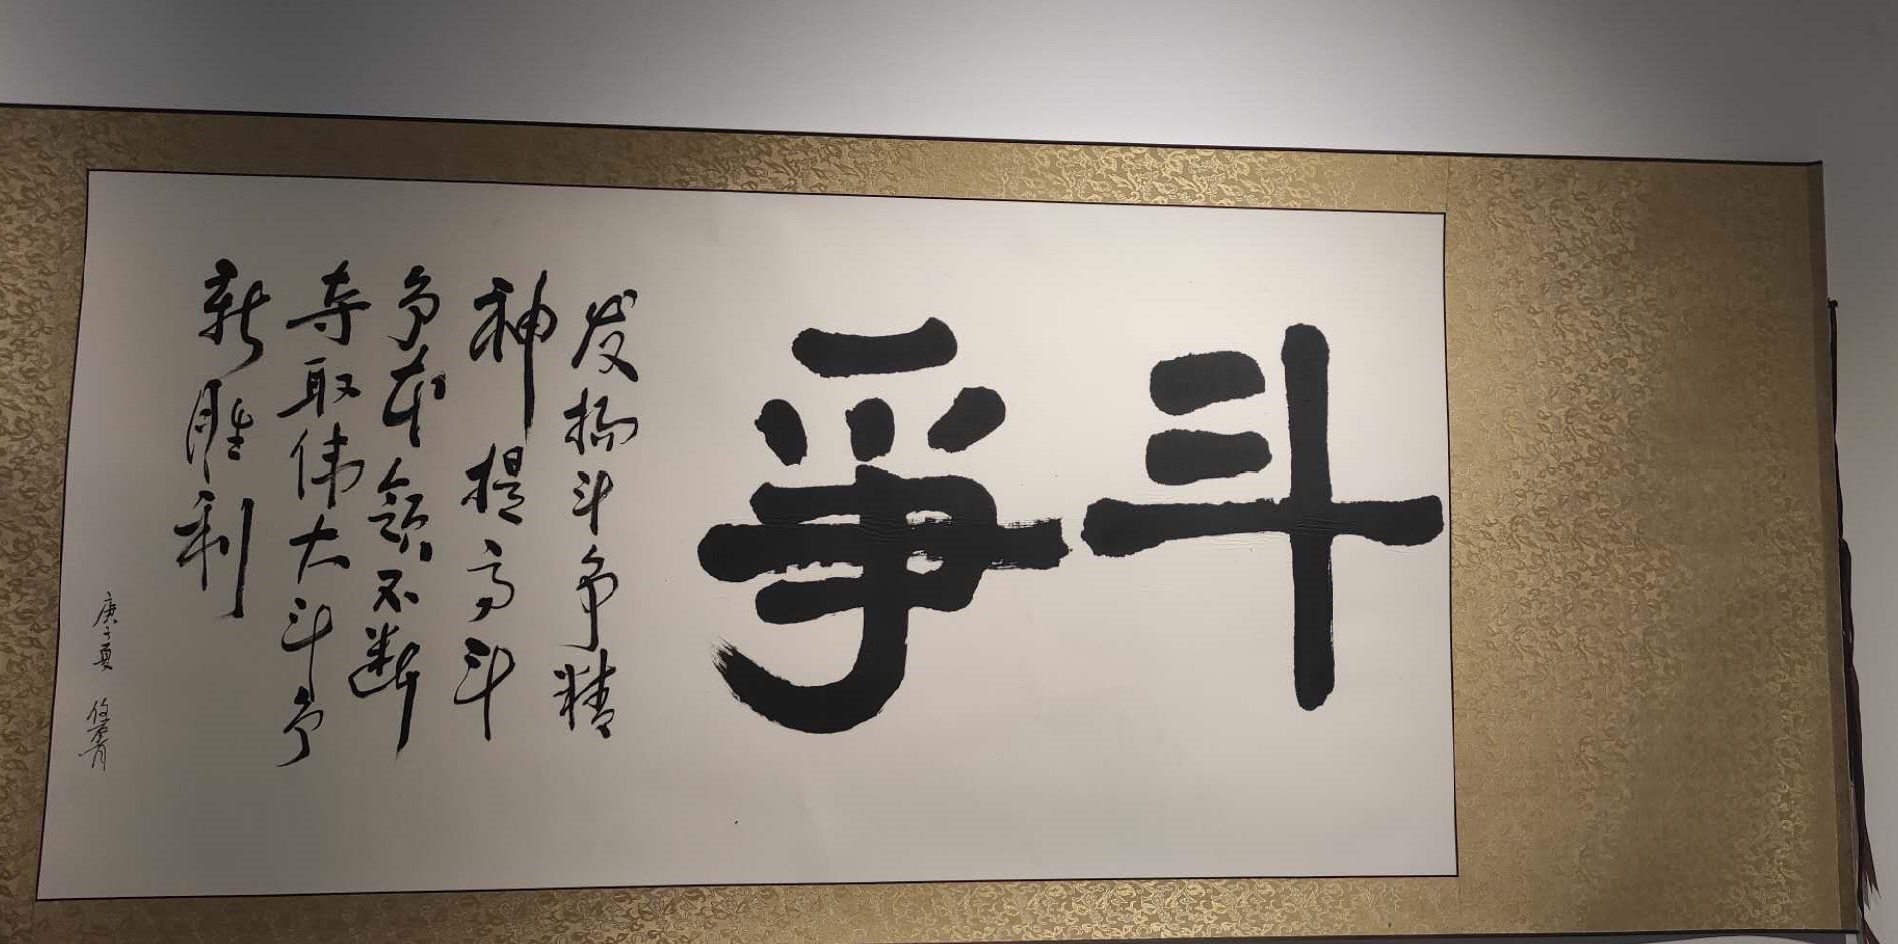 斗爭
发扬斗争精
神提高斗
争本领不断
夺取伟大斗争
新胜利
庚子夏